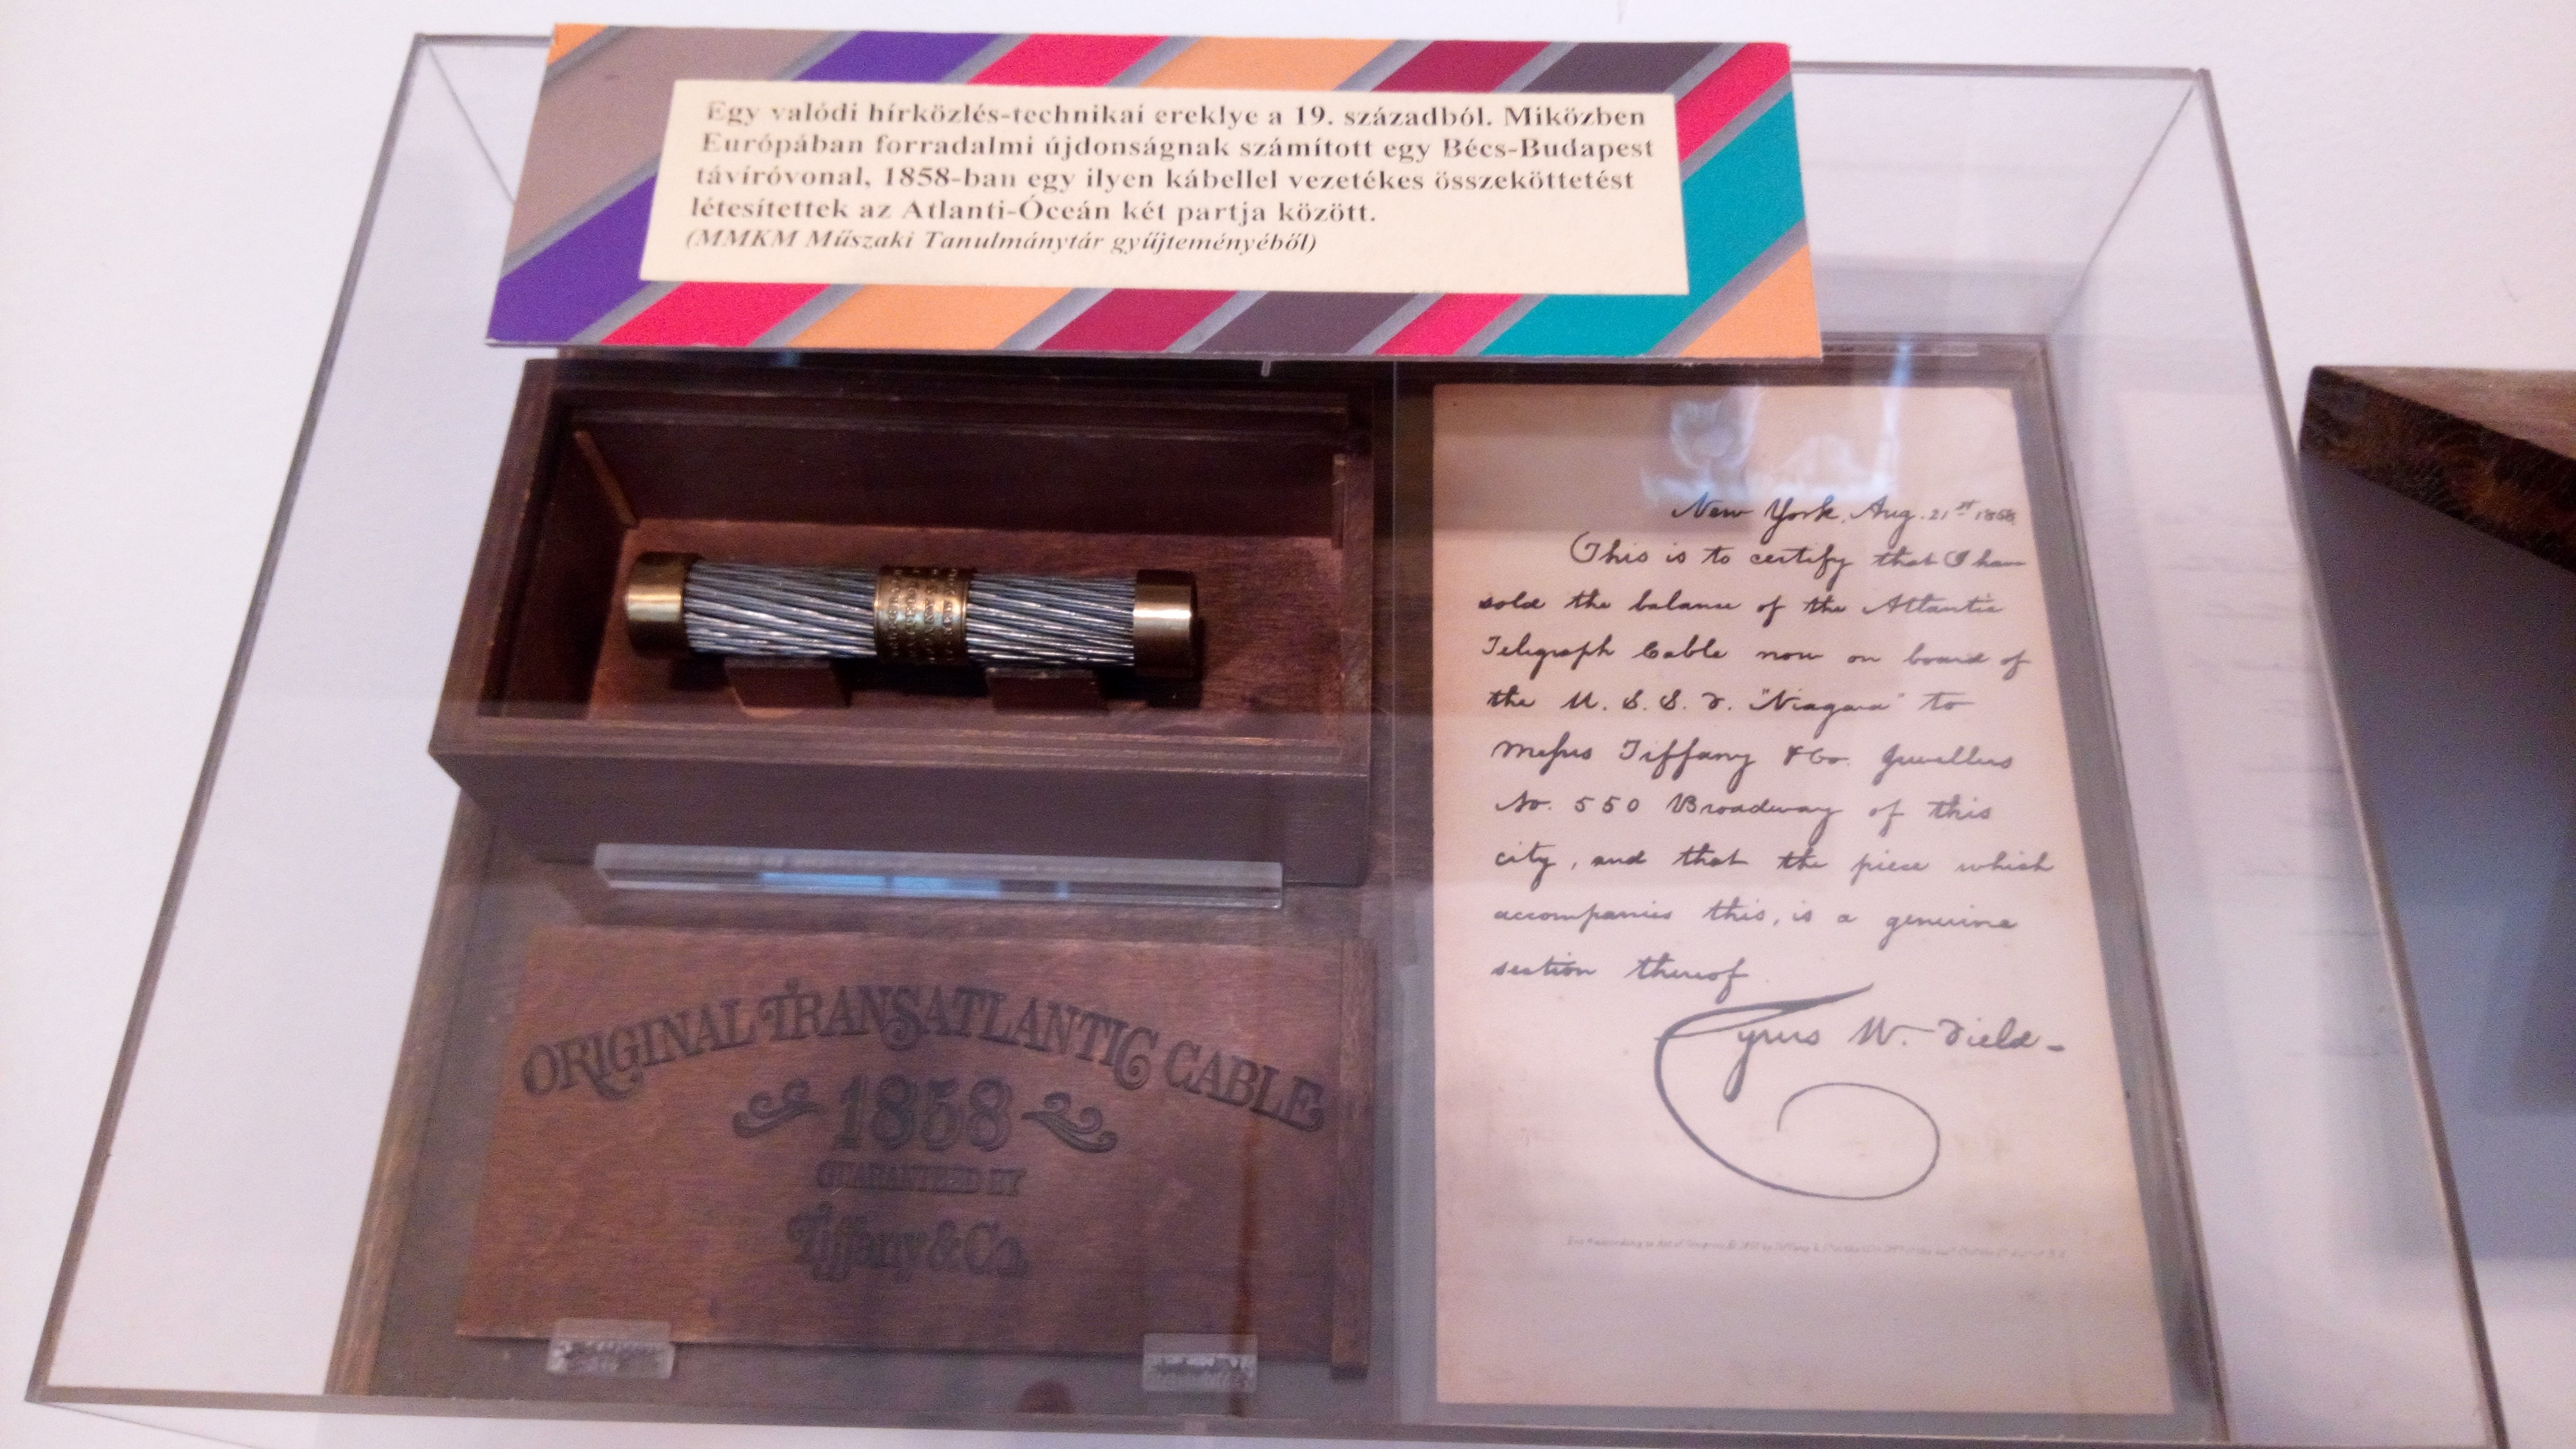 Egy valódi hírközlés-technikai ereklye a 19. századból. Miközben
Európában forradalmi újdonságnak számított egy Bécs-Budapest
távíróvonal, 1858-ban egy ilyen kábellel vezetékes összeköttetést
létesítettek az Atlanti-Óceán két partja között.
(MMKM Műszaki Tanulmánytár gyűjteményéből)
New York, Aug. 21st 1858
This is to certify that I have
sold the balance of the Atlantic
Telegraph Cable now on board of
the U. S. S. F. "Niagara" to
Messrs Tiffany & Co. Jewellers
No. 550 Broadway of this
city, and that the piece which
accompanies this, is a genuine
section thereof
Cyrus W. Field
ORIGINAL TRANSATLANTIC CABLE
1858
GUARANTEED BY
Tiffany & Co.